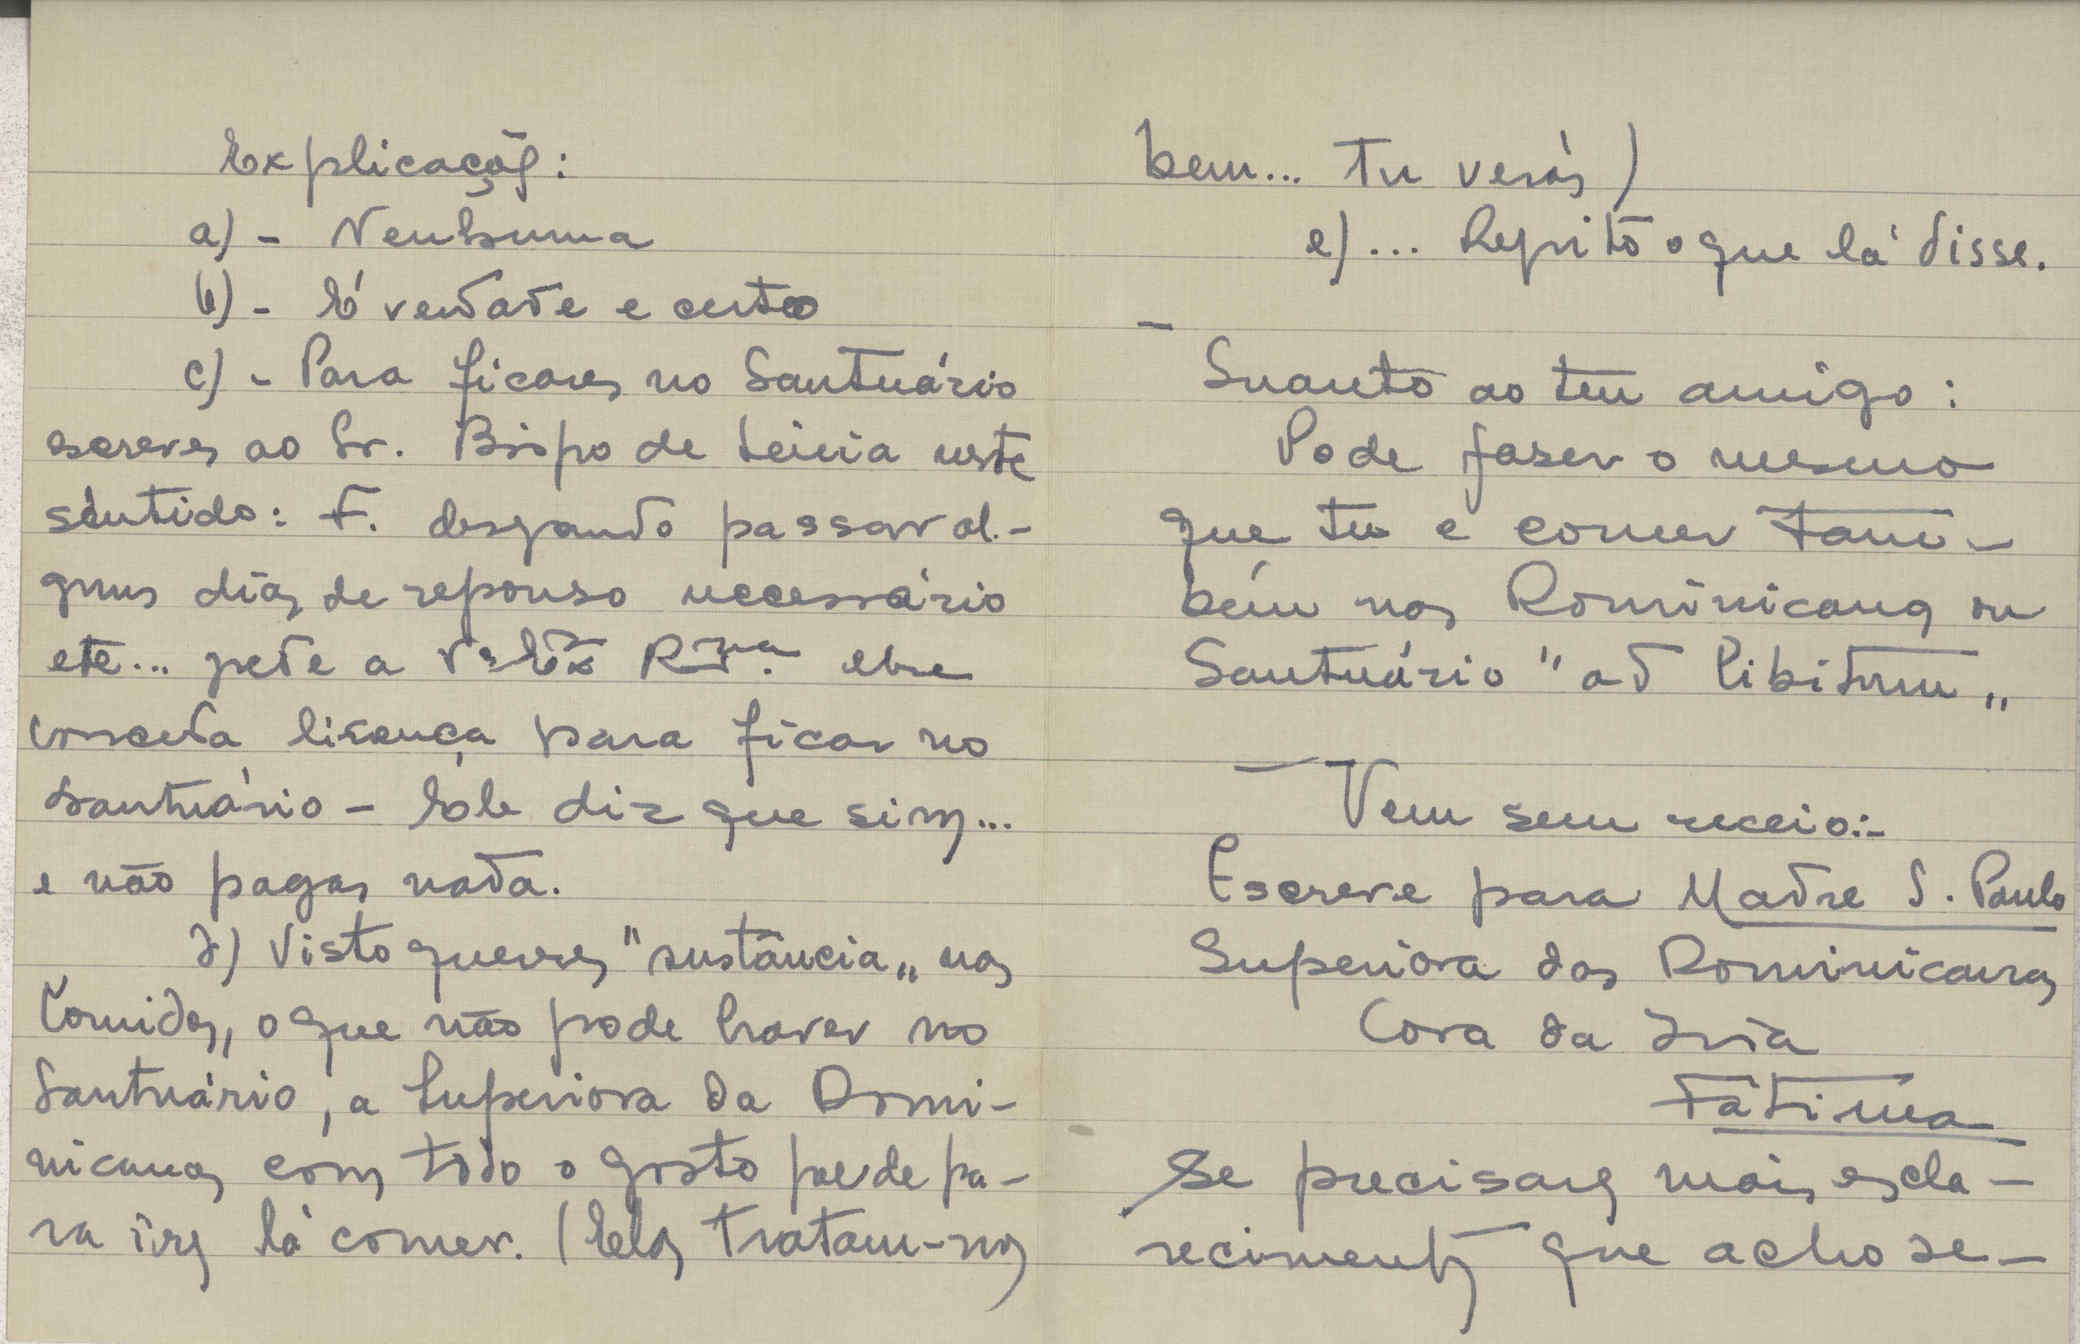 Explicações:
a) - Nenhuma
b) - É verdade e certo
c) - Para ficares no Santuário
escreves ao Sr. Bispo de Leiria neste
sentido: F. desejando passar al-
guns dias de repouso necessário
etc... pede a V.ª Ex.ª R.ma lhe
conceda licença para ficar no
Santuário - Êle diz que sim...
e não pagas nada.
d) Visto queres "sustância" nas
Comidas, o que não pode haver no
Santuário, a Superiora da Domi-
nicanas com todo o gosto pede pa-
ra ires lá comer. (Elas tratam-nos
bem... Tu verás)
e) ... Repito o que lá disse.
-
Quanto ao teu amigo:
Pode faser o mesmo
que tu e comer tam-
bém nas Dominicanas ou
Santuário "ad libitum"
Vem sem receio:-
Escreve para Madre S. Paulo
Superiora das Dominicanas
Cova da Iria
Fátima
Se precisares mais escla-
recimentos que acho se-